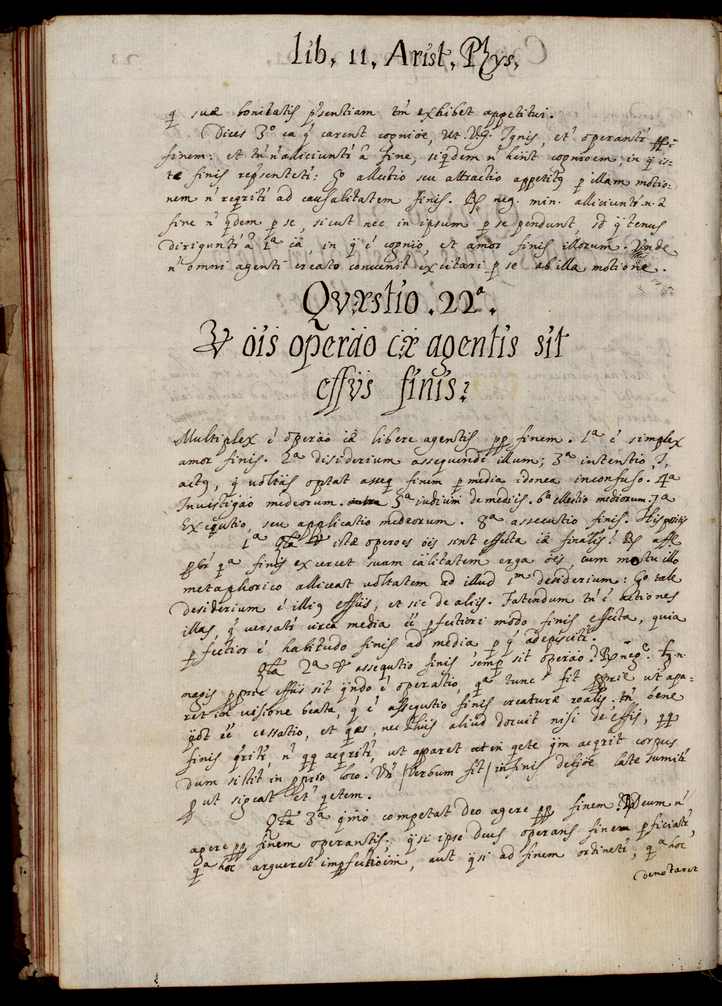 lib. 11. Arist. Phys.
q suæ bonitatis pſsentiam tñ exhibet appetitui.
Dices 3º ea q̃ carent cognioẽ, ut Vg. Ignis, etc̃ operantr̃ pp̃
finem: et tñ ñ alliciuntr̃ à fine, siqdem ñ hñt cognioem, in q̃ is-
te finis repſentetr̃: go allectio seu attractio appetitq p illam motio-
nem ñ reqritr̃ ad causalitatem finis. Rſ neg. min. alliciuntr̃ n. à
fine ñ qdem p se, sicut nec in ipsum p se pendunt, sd q̃tenus
diriguntr̃ à 1ª cã, in q̃ ẽ cognio, et amor finis illorum. Unde
ñ omni agenti creato convenit excitari p se ab illa motione.
Qvæstio .22ª.
Ṽ oĩs operão cæ agentis sit
effụ̃s finis?
Multiplex ẽ operão cæ libere agentis pp̃ finem. 1ª ẽ simplex
amor finis. 2ª desiderium assequendi illum; 3ª intentio,
actq, q̃ volũtas optat asseq finem p media idonea inconfuso. 4ª
Investigão mediorum. 5ª iudium de mediis. 6ª electio mediorum. 7ª
Exequtio, seu applicatio mediorum. 8ª assecutio finis. His positis
1ª Qta Ṽ istæ operoes oẽs sint effecta cæ finalis? Rſ affe
pbr̃ qª finis exercet suam cãlitatem erga oẽs, cum motu illo
metaphorico alliceat volũtatem ad illud desiderium: Go tale
desiderium ẽ illiq effũs, et sic de aliis. Fatendum tñ ẽ actiones
illas, q̃ versatr̃ circa media ẽẽ pfectiori modo finis effecta, quia
pfectior ẽ habitudo finis ad media p q̃ adipiscitr̃.
Qta 2ª Ṽ assequtio finis semp sit operão? Rſ neg.
magis pprie effũs sit qndo ẽ operatio, qª tunc fit pprie ut apa-
ret in visione beata, q̃ ẽ assequtio finis creaturæ roalis, tñ bene
põt ẽẽ cessatio, et qes, nec huis aliud docuit nisi de effis,
finis qritr̃, ñ qq aeqritr̃, ut apparet in qete qm aeqrit corpus
dum sistit in pprio loco. Un̄ verbum fit in finis defioẽ late sumitr̃
p ut sigeat etc̃ qetem.
Qta 3ª qmõ competat deo agere pp̃ finem? Rſ Deum ñ
agere pp̃ finem operantis; q̃si ipse deus operans finem pficiatr̃,
qª hoc argueret impfectioem, aut q̃si ad finem ordinetr̃, qª hoc
denotaret